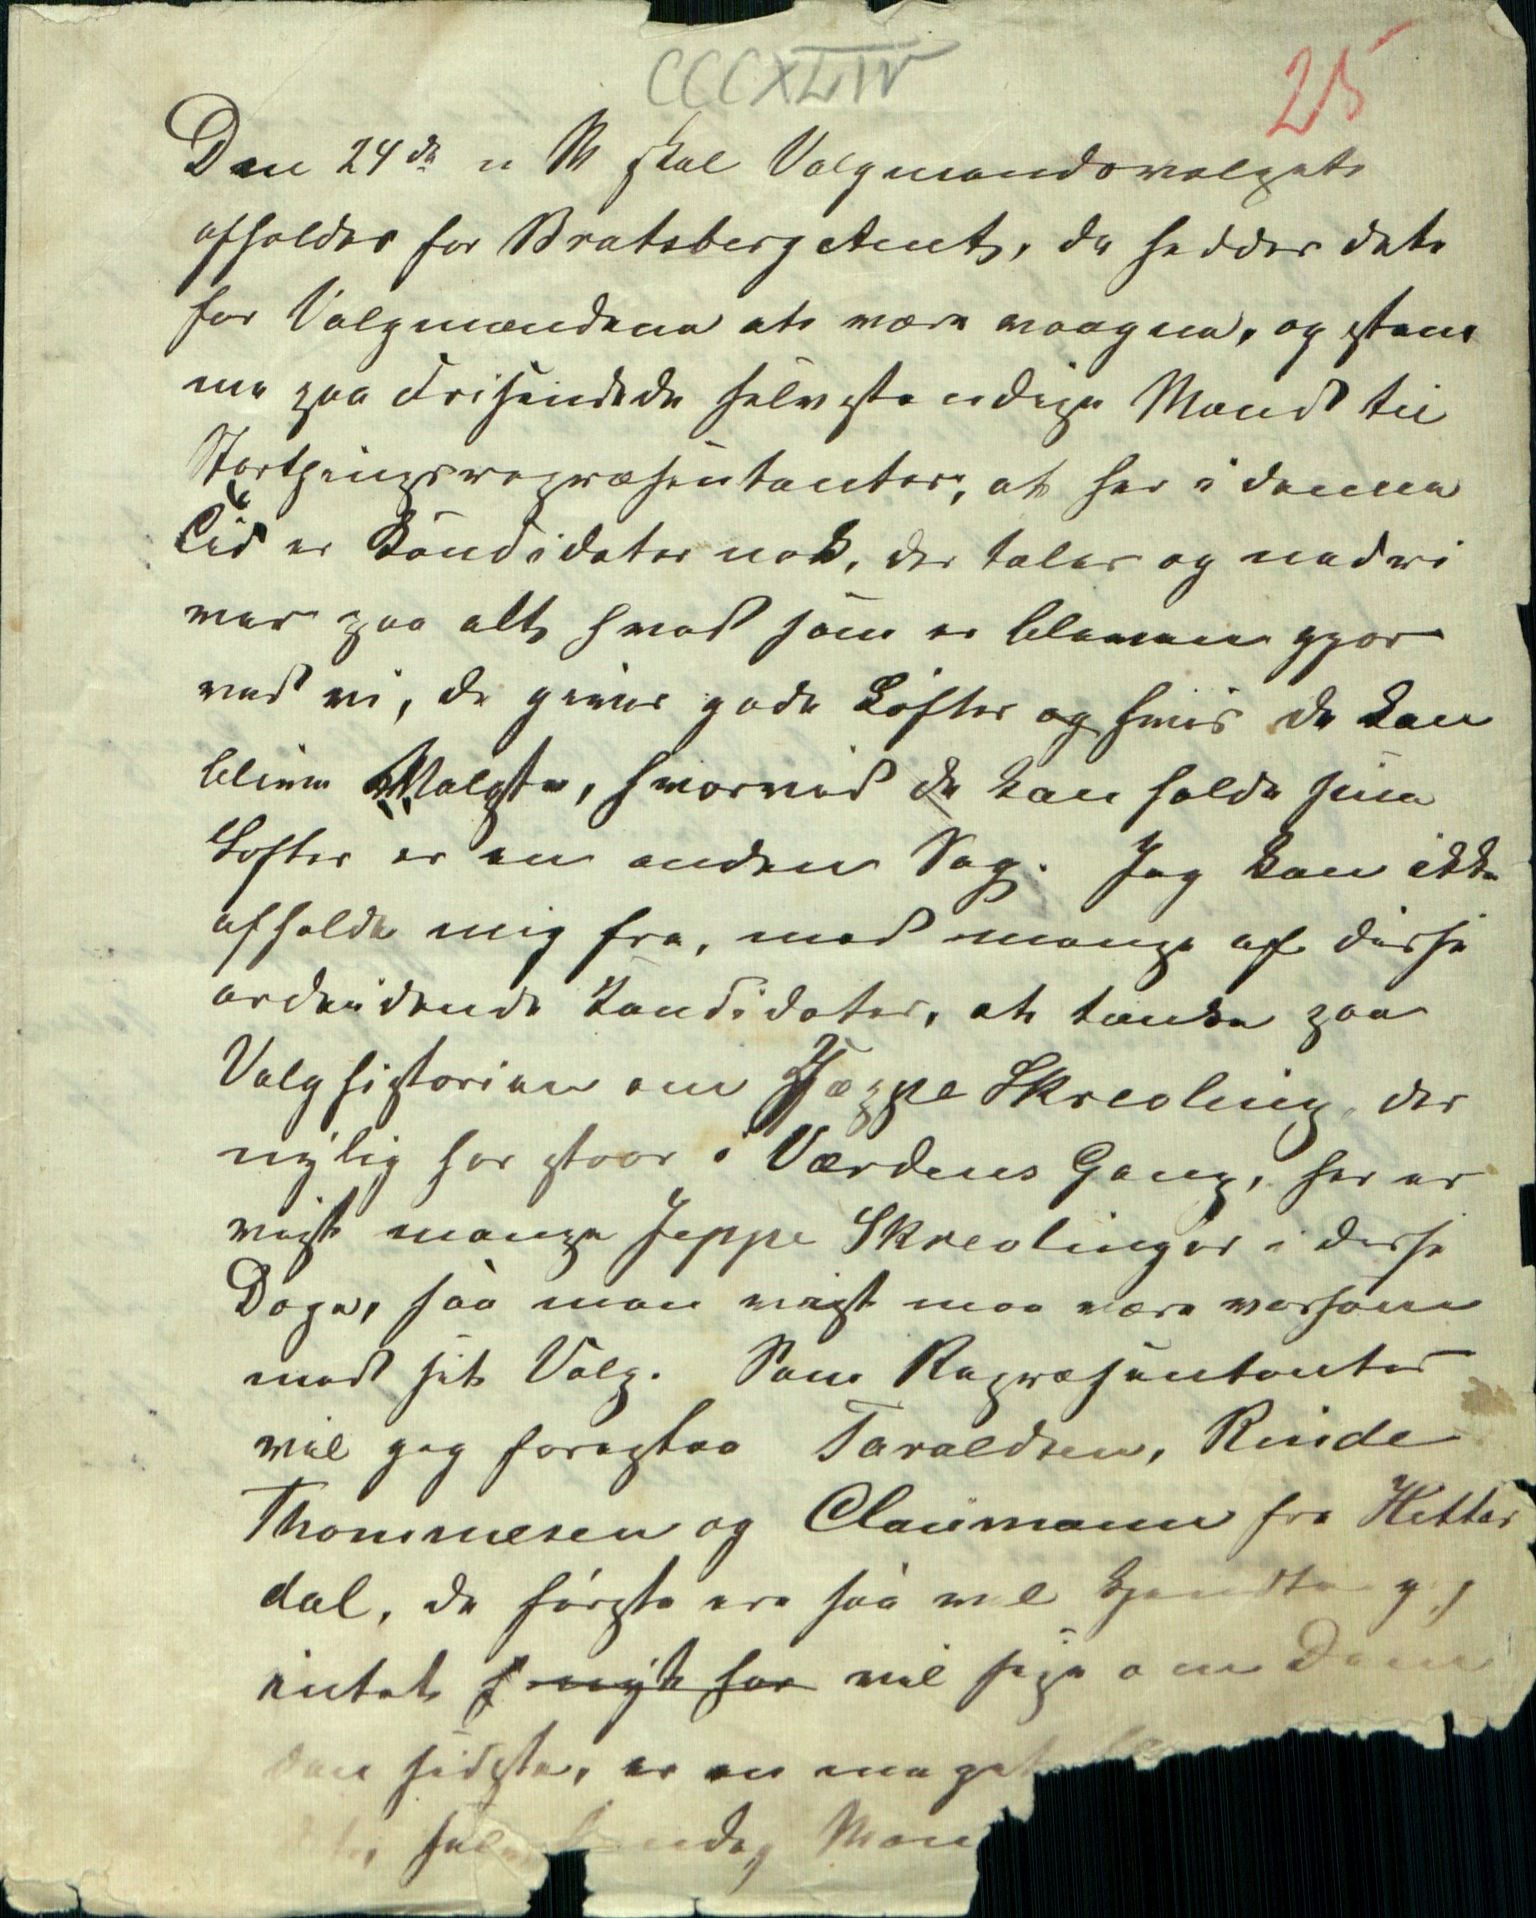 CCCXLIV
25
Den 24de n M skal Valgmandsvalget
afholdes for Bratsberg Amt, da hedder det
for Valgmændene at være vaagne, og stem
me paa Frisindede selvstændige Mænd til
Storthingsrepræsentanter, at her i denne
Tid er Kandidater nok, der taler og nedri
ver paa alt hvad som er bleven gjor
ved vi, de giver gode Løfter og hvis de kan
blive Valgte, hvorvid de kan holde sine
Løfter er en anden Sag. Jeg kan ikke
afholde mig fra, med mange af disse
Kandidater, at tænke paa
Valghistorien om Jeppe Skreoling, der
nylig har staar i Værdens Gang, her er
vist mange Jeppe Skreolinger i disse
Dage, saa man vist maa være varsom
med sit Valg. Som Repræsentanter
vil jeg foreslaa Taraldsen, Rinde
Thommesen og Claumann fra Hitter
dal, de første ere saa vel kjendte jeg
intet nyt har vil sige om Dem
den sidste, er en meget
Man